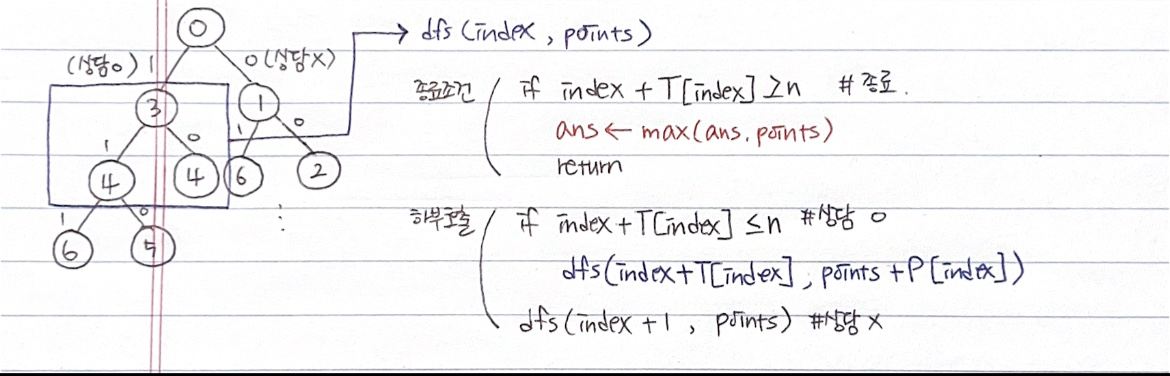 0
dfs(index, points)
(상담o) 1
0(상담x)
3
1
종료조건
if index + T[index] ≥n #종료.
1
0
1
0
ans ← max(ans, points)
4
4
6
2
return
1
0
⋮
하부호출
if index+T[index] ≤n #상담 o
6
5
dfs(index+T[index], points+P[index])
dfs(index+1, points) #상담 x